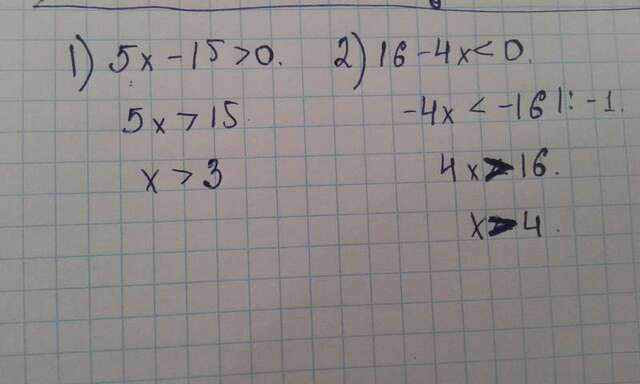 1) 5x - 15 > 0.
5x > 15
x > 3
2) 16 - 4x < 0.
-4x < -16 |: -1.
4x > 16.
x > 4.